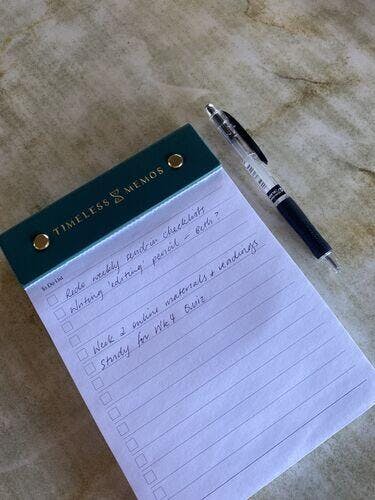 TIMELESS MEMOS
To Do List
Redo weekly send-in checklists
Writing 'editing' pencil - Beth?
Week 2 online materials + readings
Study for Wk 4 Quiz